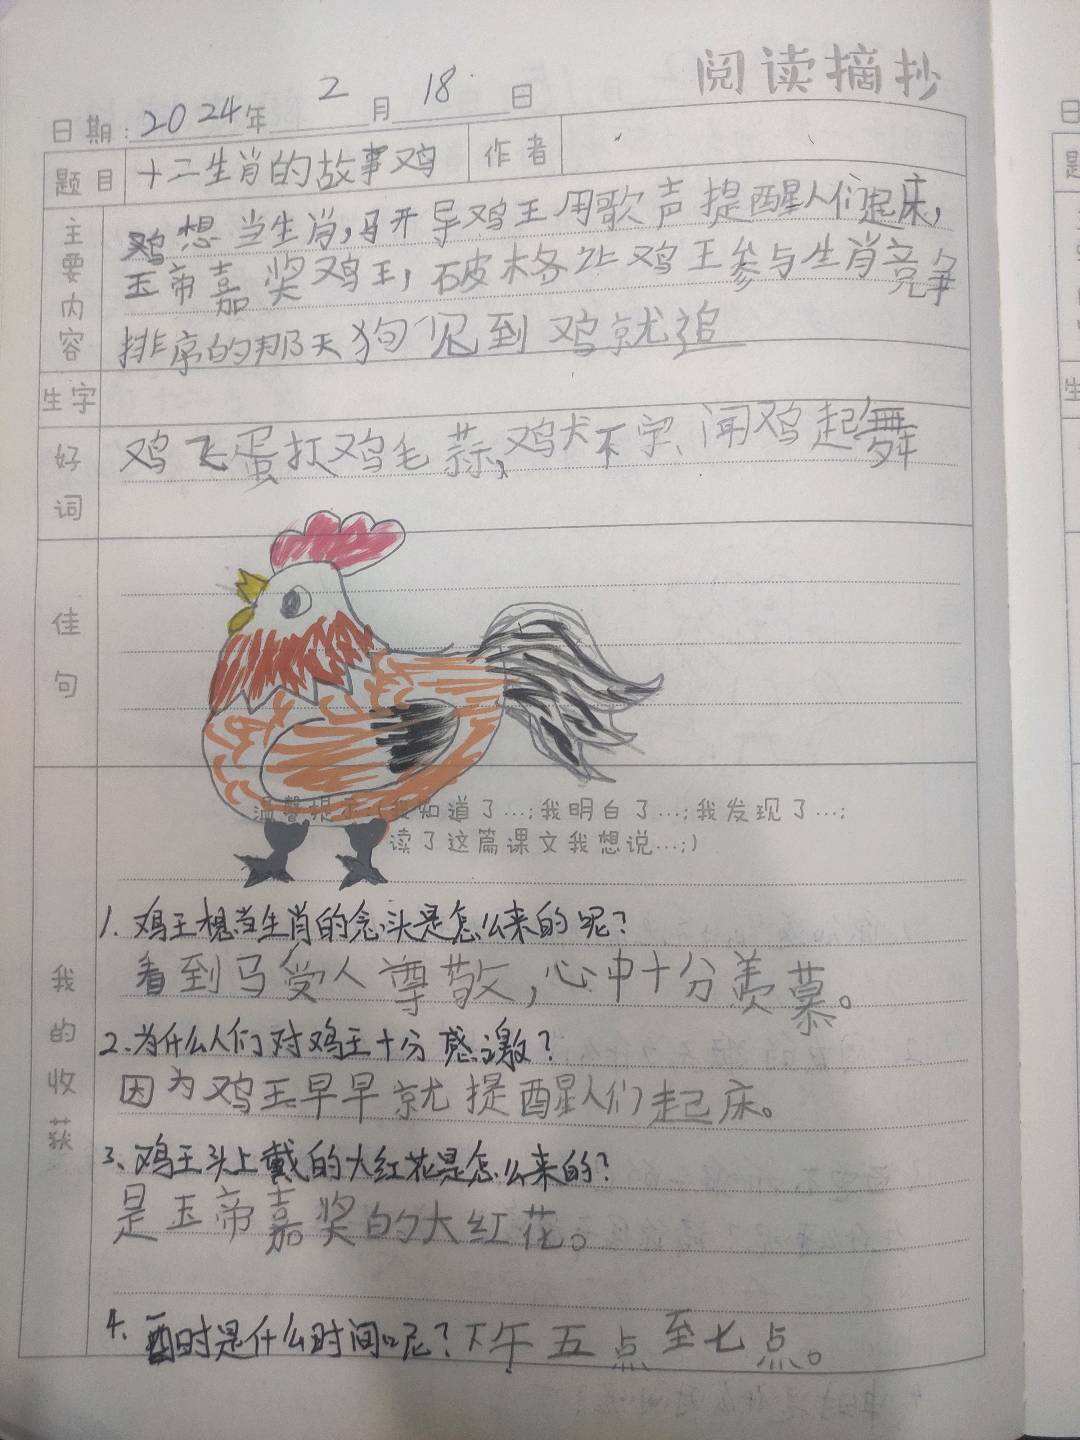 阅读摘抄
日期：2024年2月18日
题目 十二生肖的故事鸡 作者
主要内容
鸡想当生肖，马开导鸡王用歌声提醒人们起床，
玉帝嘉奖鸡王，破格让鸡王参与生肖竞争
排序的那天狗见到鸡就追
生字
好词
鸡飞蛋打鸡毛蒜，鸡犬不宁、闻鸡起舞
佳句
温馨提示（我知道了…；我明白了…；我发现了…；
读了这篇课文我想说…；）
我的收获
1. 鸡王想当生肖的念头是怎么来的呢？
看到马受人尊敬，心中十分羡慕。
2. 为什么人们对鸡王十分感激？
因为鸡王早早就提醒人们起床。
3、鸡王头上戴的大红花是怎么来的？
是玉帝嘉奖的大红花。
4. 酉时是什么时间呢？下午五点至七点。